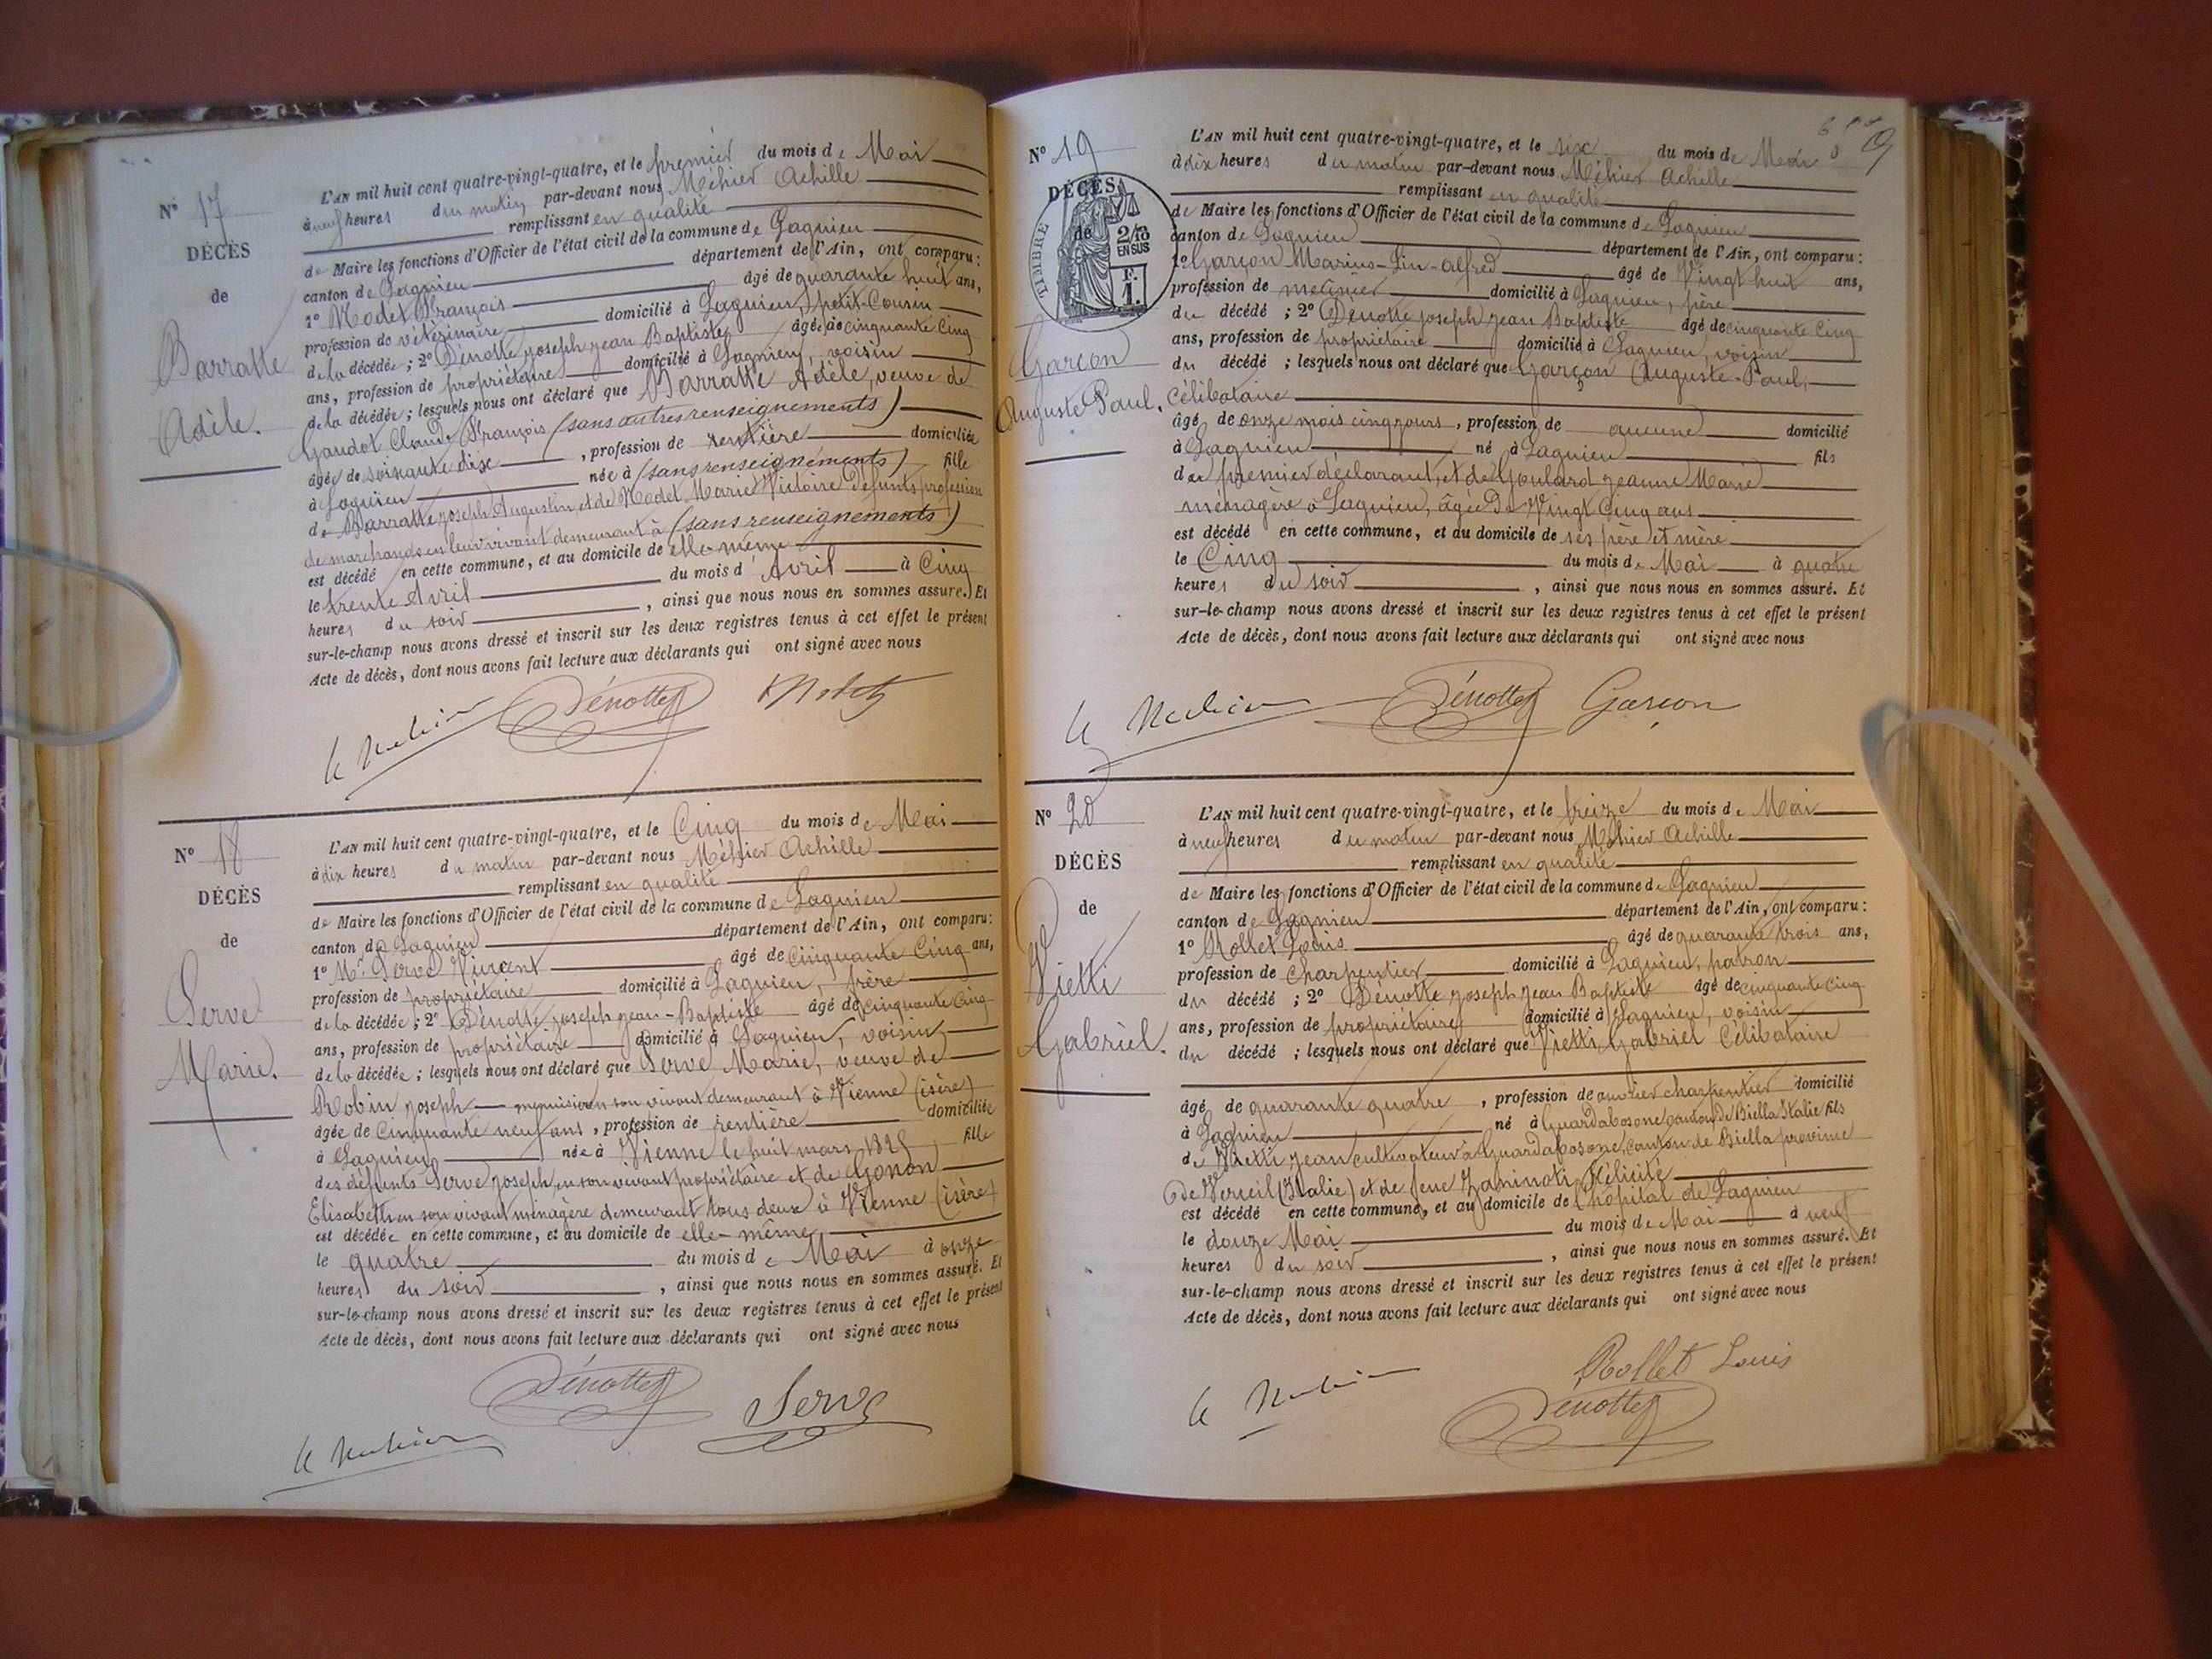 N° 17
DÉCÈS
de
Barratte
Adèle.
L'AN mil huit cent quatre-vingt-quatre, et le premier du mois de Mai
à neuf heures du matin par-devant nous Méhier Achille
remplissant en qualité
de Maire les fonctions d'Officier de l'état civil de la commune de Lagnieu
canton de Lagnieu département de l'Ain, ont comparu:
1° Modet François âgé de quarante huit ans,
profession de vétérinaire domicilié à Lagnieu, petit-Cousin
de la décédée; 2° Dénotte joseph jean Baptiste âgé de cinquante cinq
ans, profession de propriétaire domicilié à Lagnieu, voisin
de la décédée; lesquels nous ont déclaré que Barratte Adèle, veuve de
Gaudot Claude François (sans autres renseignements)
âgée de soixante dix, profession de rentière domiciliée
à Lagnieu née à (sans renseignements) fille
de Barratte joseph Augustin, et de Modet Marie Victoire défunts, profession
de marchands en leur vivant demeurant à (sans renseignements)
est décédé en cette commune, et au domicile de elle-même
le trente Avril du mois d'Avril à Cinq
heures du soir, ainsi que nous nous en sommes assuré. Et
sur-le-champ nous avons dressé et inscrit sur les deux registres tenus à cet effet le présent
Acte de décès, dont nous avons fait lecture aux déclarants qui ont signé avec nous
Dénotte Modet
N° 18
DÉCÈS
de
Serve
Marie.
L'AN mil huit cent quatre-vingt-quatre, et le Cinq du mois de Mai
à dix heures du matin par-devant nous Méhier Achille
remplissant en qualité
de Maire les fonctions d'Officier de l'état civil de la commune de Lagnieu
canton de Lagnieu département de l'Ain, ont comparu:
1° Mr Serve Vincent âgé de Cinquante Cinq ans,
profession de propriétaire domicilié à Lagnieu, frère
de la décédée; 2° Dénotte joseph jean-Baptiste âgé de cinquante cinq
ans, profession de propriétaire domicilié à Lagnieu, voisin
de la décédée; lesquels nous ont déclaré que Serve Marie, veuve de
Robin joseph en son vivant demeurant à Vienne (isère)
âgée de Cinquante neuf ans, profession de rentière domiciliée
à Lagnieu née à Vienne le huit mars 1825 fille
des défunts Serve joseph, en son vivant propriétaire et de Gonon
Elisabeth en son vivant ménagère demeurant tous deux à Vienne (isère)
est décédée en cette commune, et au domicile de elle-même
le quatre du mois de Mai à onze
heures du soir, ainsi que nous nous en sommes assuré. Et
sur-le-champ nous avons dressé et inscrit sur les deux registres tenus à cet effet le présent
Acte de décès, dont nous avons fait lecture aux déclarants qui ont signé avec nous
Dénotte Serve
N° 19
DÉCÈS
de
TIMBRE
2/10 EN SUS
F. 1.
Garçon
Auguste Paul.
L'AN mil huit cent quatre-vingt-quatre, et le six du mois de Mai
à dix heures du matin par-devant nous Méhier Achille
remplissant en qualité
de Maire les fonctions d'Officier de l'état civil de la commune de Lagnieu
canton de Lagnieu département de l'Ain, ont comparu:
1° Garçon Marius-Lin-alfred âgé de Vingt huit ans,
profession de domicilié à Lagnieu, père
du décédé; 2° Dénotte joseph jean Baptiste âgé de cinquante Cinq
ans, profession de propriétaire domicilié à Lagnieu, voisin
du décédé; lesquels nous ont déclaré que Garçon Auguste-Paul,
Célibataire
âgé de onze mois cinq jours, profession de aucune domicilié
à Lagnieu né à Lagnieu fils
du premier déclarant, et de Goulard jeanne Marie
ménagère à Lagnieu, âgée de Vingt Cinq ans
est décédé en cette commune, et au domicile de ses père et mère
le Cinq du mois de Mai à quatre
heures du soir, ainsi que nous nous en sommes assuré. Et
sur-le-champ nous avons dressé et inscrit sur les deux registres tenus à cet effet le présent
Acte de décès, dont nous avons fait lecture aux déclarants qui ont signé avec nous
Dénotte Garçon
N° 20
DÉCÈS
de
Vietti
Gabriel.
L'AN mil huit cent quatre-vingt-quatre, et le treize du mois de Mai
à neuf heures du matin par-devant nous Méhier Achille
remplissant en qualité
de Maire les fonctions d'Officier de l'état civil de la commune de Lagnieu
canton de Lagnieu département de l'Ain, ont comparu:
1° Rollet Louis âgé de quarante trois ans,
profession de Charpentier domicilié à Lagnieu, patron
du décédé; 2° Dénotte joseph jean Baptiste âgé de cinquante cinq
ans, profession de propriétaire domicilié à Lagnieu, voisin
du décédé; lesquels nous ont déclaré que Vietti Gabriel Célibataire
âgé de quarante quatre, profession de ouvrier charpentier domicilié
à Lagnieu né à Guardabosone canton de Biella Italie fils
de Vietti jean cultivateur à Guardabosone, canton de Biella province
de Verceil (Italie) et de feue Zaninoti Félicité
est décédé en cette commune, et au domicile de l'hôpital de Lagnieu
le douze Mai du mois de Mai à neuf
heures du soir, ainsi que nous nous en sommes assuré. Et
sur-le-champ nous avons dressé et inscrit sur les deux registres tenus à cet effet le présent
Acte de décès, dont nous avons fait lecture aux déclarants qui ont signé avec nous
Rollet Louis
Dénotte